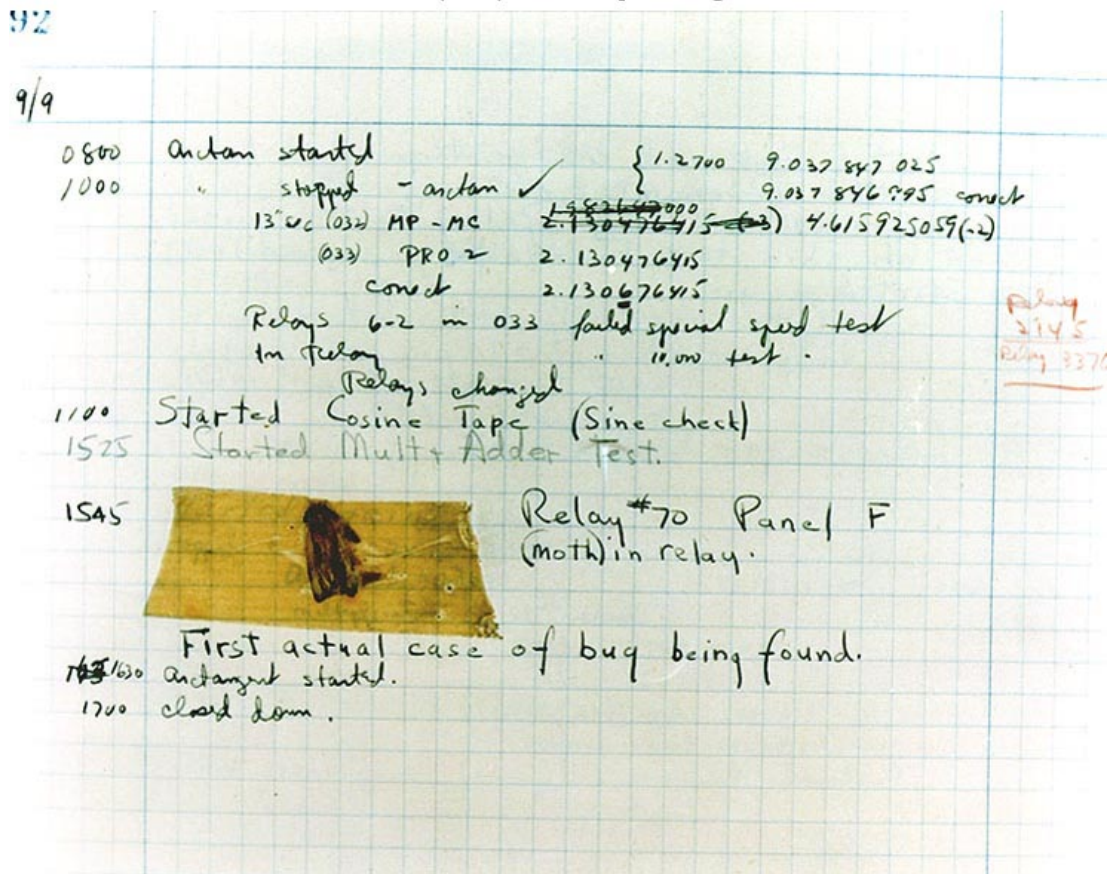 92
9/9
0800 arctan started { 1.2700 9.037 847 025
1000 " stopped - arctan ✓ 9.037 846 795 correct
13" uc (032) MP - MC 1.982647000 2.130476415 (-3) 4.615925059(-2)
(033) PRO 2 2.130476415
correct 2.130676415
Relays 6-2 in 033 failed special speed test
In Relay " 10.000 test .
Relay
2145
Relay 3370
Relays changed
1100 Started Cosine Tape (Sine check)
1525 Started Mult + Adder Test.
1545 Relay #70 Panel F
(moth) in relay.
First actual case of bug being found.
1630 arctangent started.
1700 closed down.